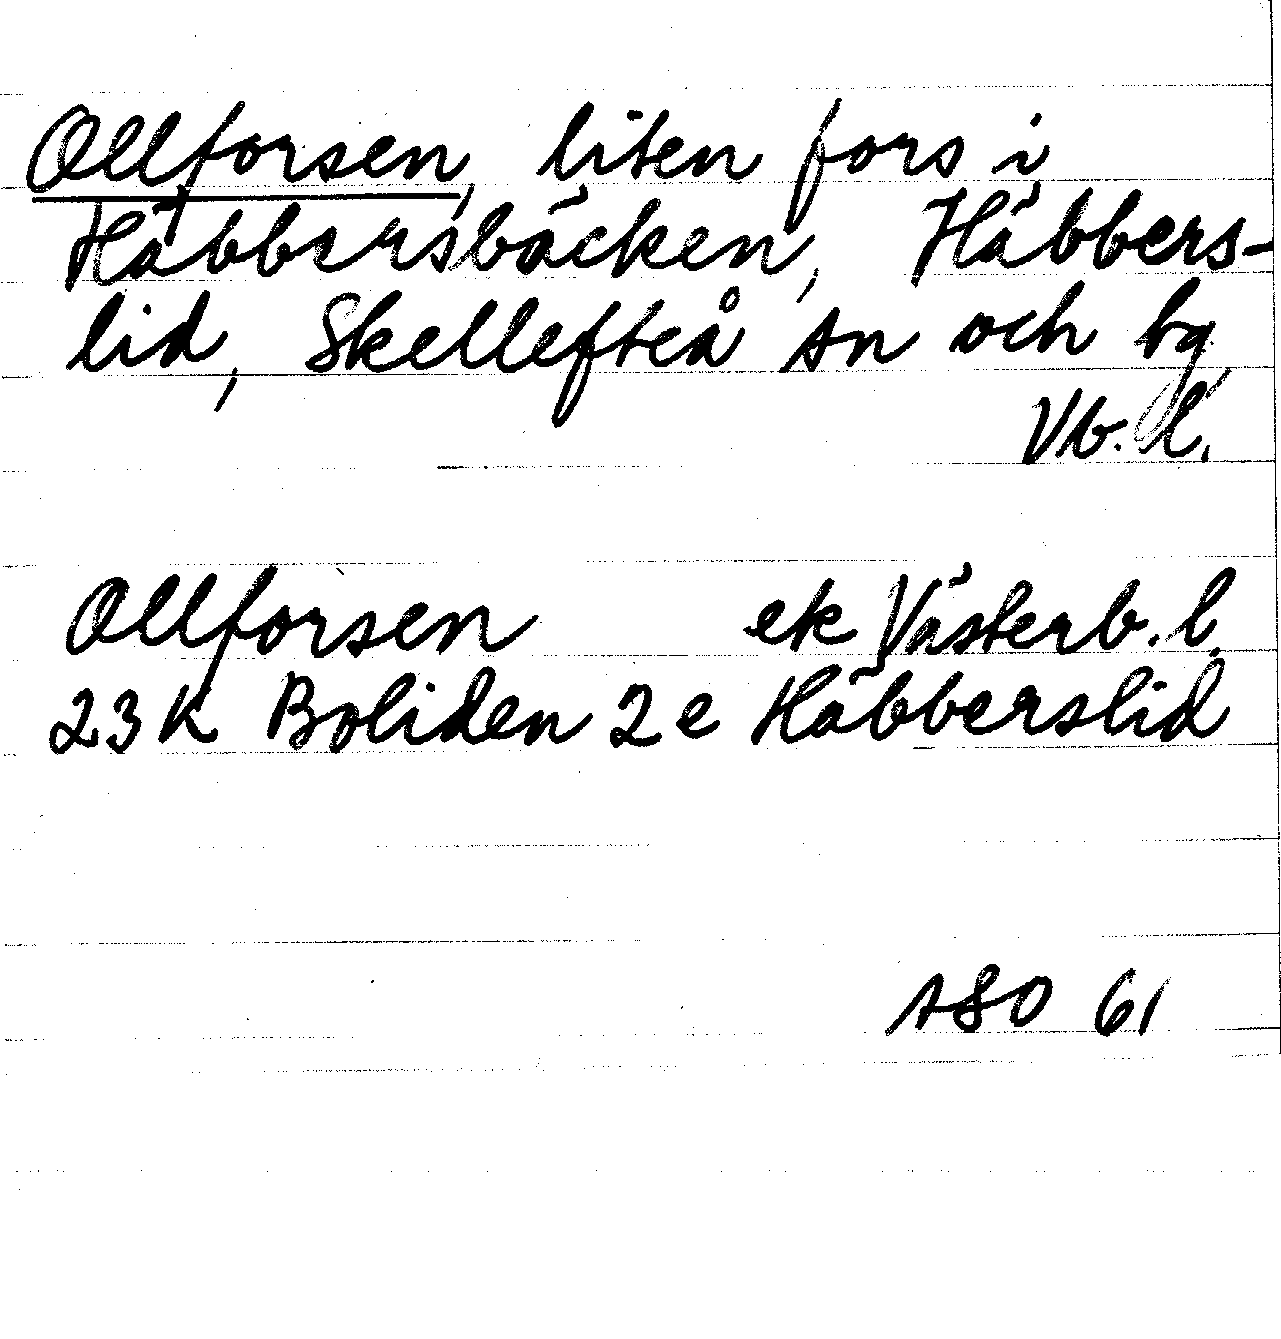 Ollforsen, liten fors i
Häbbersbäcken, Häbbers-
lid, Skellefteå sn och bg,
Vb. l.
Ollforsen ek Västerb. l.
23 K Boliden 2 e Häbberslid
ASO 61